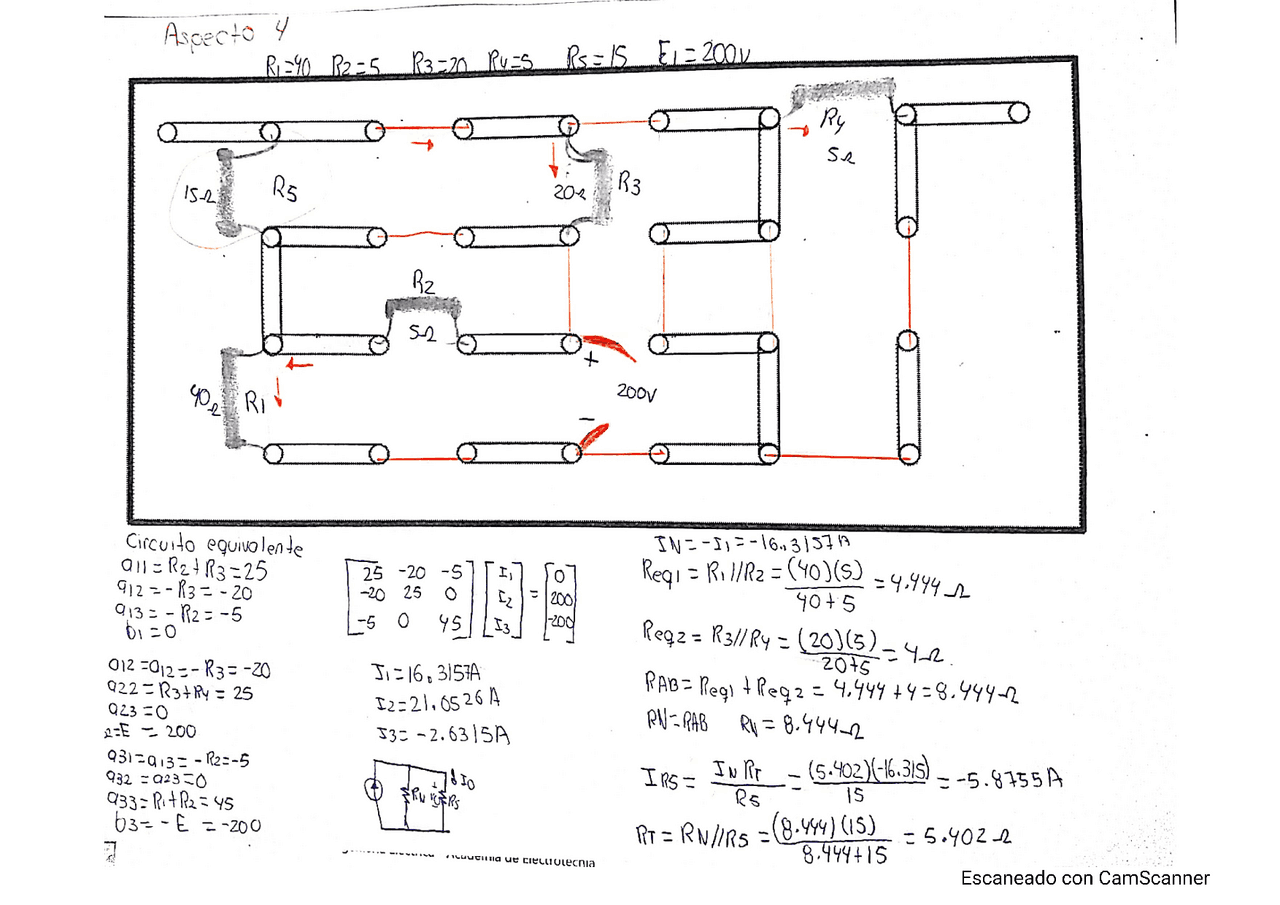 Aspecto 4
R1=40 R2=5 R3=20 R4=5 R5=15 E1=200V
R4
5Ω
15Ω
R5
20Ω
R3
R2
5Ω
+
200V
40Ω
R1
-
Circuito equivalente
a11=R2+R3=25
a12=-R3=-20
a13=-R2=-5
b1=0
a12=a12=-R3=-20
a22=R3+R4=25
a23=0
2=E=200
a31=a13=-R2=-5
a32=a23=0
a33=R1+R2=45
b3=-E=-200
25 -20 -5 I1 0
-20 25 0 I2 = 200
-5 0 45 I3 -200
I1=16,3157A
I2=21,0526A
I3=-2.6315A
IO
RN R5
IN=-I1=-16.3157A
Req1=R1//R2=(40)(5)/40+5=4.444Ω
Req2=R3//R4=(20)(5)/20+5=4Ω.
RAB=Req1+Req2=4.444+4=8.444Ω
RN=RAB RN=8.444Ω
IR5=IN RT/R5=(5.402)(-16.315)/15=-5.8755A
RT=RN//R5=(8.444)(15)/8.444+15=5.402Ω
Academia de Electrotecnia
Escaneado con CamScanner